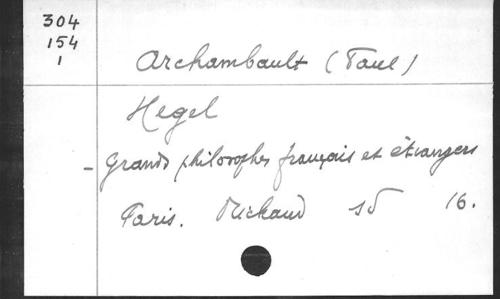 304
154
1
Archambault (Paul)
Hegel
- Grands philosophes français et étrangers
Paris. Michaud sd 16.